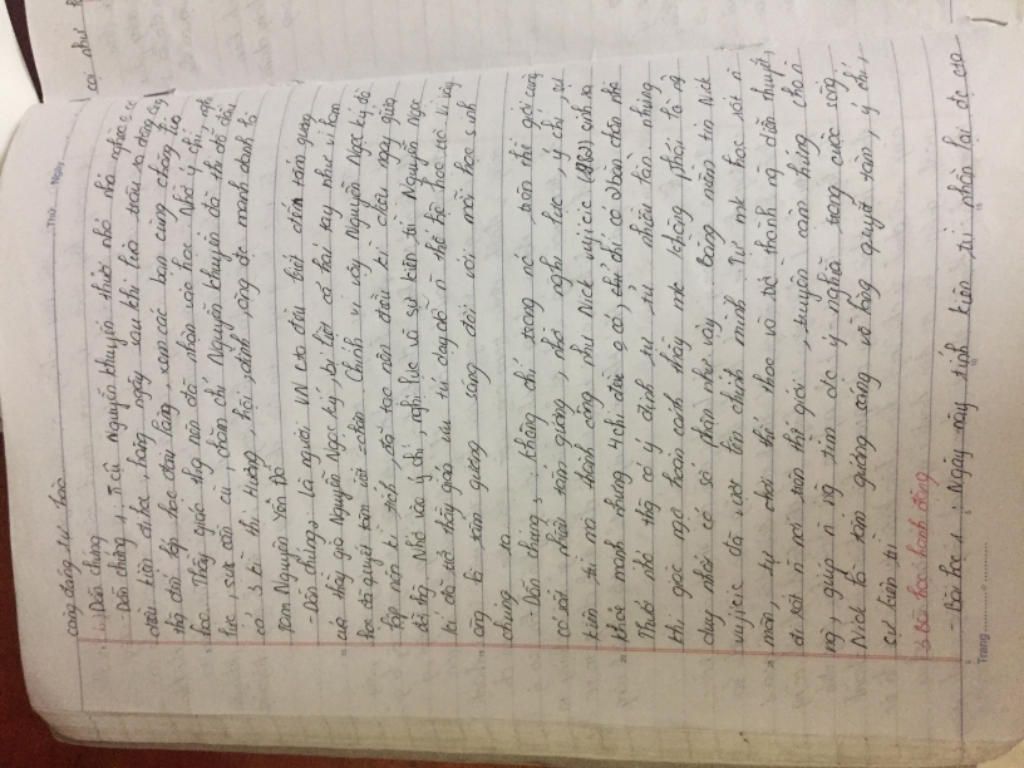 càng đáng tự hào
2.) Dẫn chứng
- Dẫn chứng 1: Nguyễn Khuyến thuở nhỏ nhà nghèo,
điều kiện đi học, hằng ngày sau khi lùa trâu ra đồng
thg đến lớp học đầu làng, xem các bạn cùng chăng lứa
học. Thầy giáo thg nên đã nhận vào học. Nhờ ý chí, nghị
lực, sự cần cù, chăm chỉ Nguyễn Khuyến đã thi đỗ đầu
cả 3 kì thi Hương, hội, đình, rộng đc mệnh danh là
Tam Nguyên Yên Đổ
- Dẫn chứng 2: Là người VN ta đều biết đến tấm gương
của thầy giáo Nguyễn Ngọc Ký, bị liệt cả hai tay như vì ham
học đã quyết tâm viết = chân. Chính vì vậy Nguyễn Ngọc Ký đã
tập nên kì tích, đã tạc nên dấu kì diệu ngay giữa
đời thg. Nhờ vào ý chí, nghị lực và sự kiên trì Nguyễn Ngọc
kí đã trở thầy giáo ưu tú dạy dỗ n thế hệ học trò vì vậy
ông là tấm gương sáng đối với mỗi học sinh
chúng ta
- Dẫn chứng 3: không chỉ trong nc trên thế giới cũng
có rất nhiều tấm gương, nhờ nghị lực, ý chí, sự
kiên trì mà thành công như Nick vujicic (1982) sinh ra
khoẻ mạnh nhưng 4 chi đều 0 có, chỉ có 2 bàn chân nhỏ
Thuở nhỏ thg có ý định tự tử, tự nhiều lần. nhưng
khi giác ngộ hoàn cảnh thấy mk không phải là ng
duy nhất có số phận như vậy bằng niềm tin Nick
vujicic đã vượt lên chính mình. Từ mk học sói n
môn, tự chơi thể thao và trở thành ng diễn thuyết,
đi rất n nơi trên thế giới, truyền cảm hứng cho n
ng, giúp n ng tìm dc ý nghĩa trong cuộc sống
Nick là tấm gương sáng về lòng quyết tâm, ý chí,
sự kiên trì
3. bài học hành động
- Bài học 1: Ngày nay tính kiên trì nhẫn lại đc
Thứ Ngày
Trang